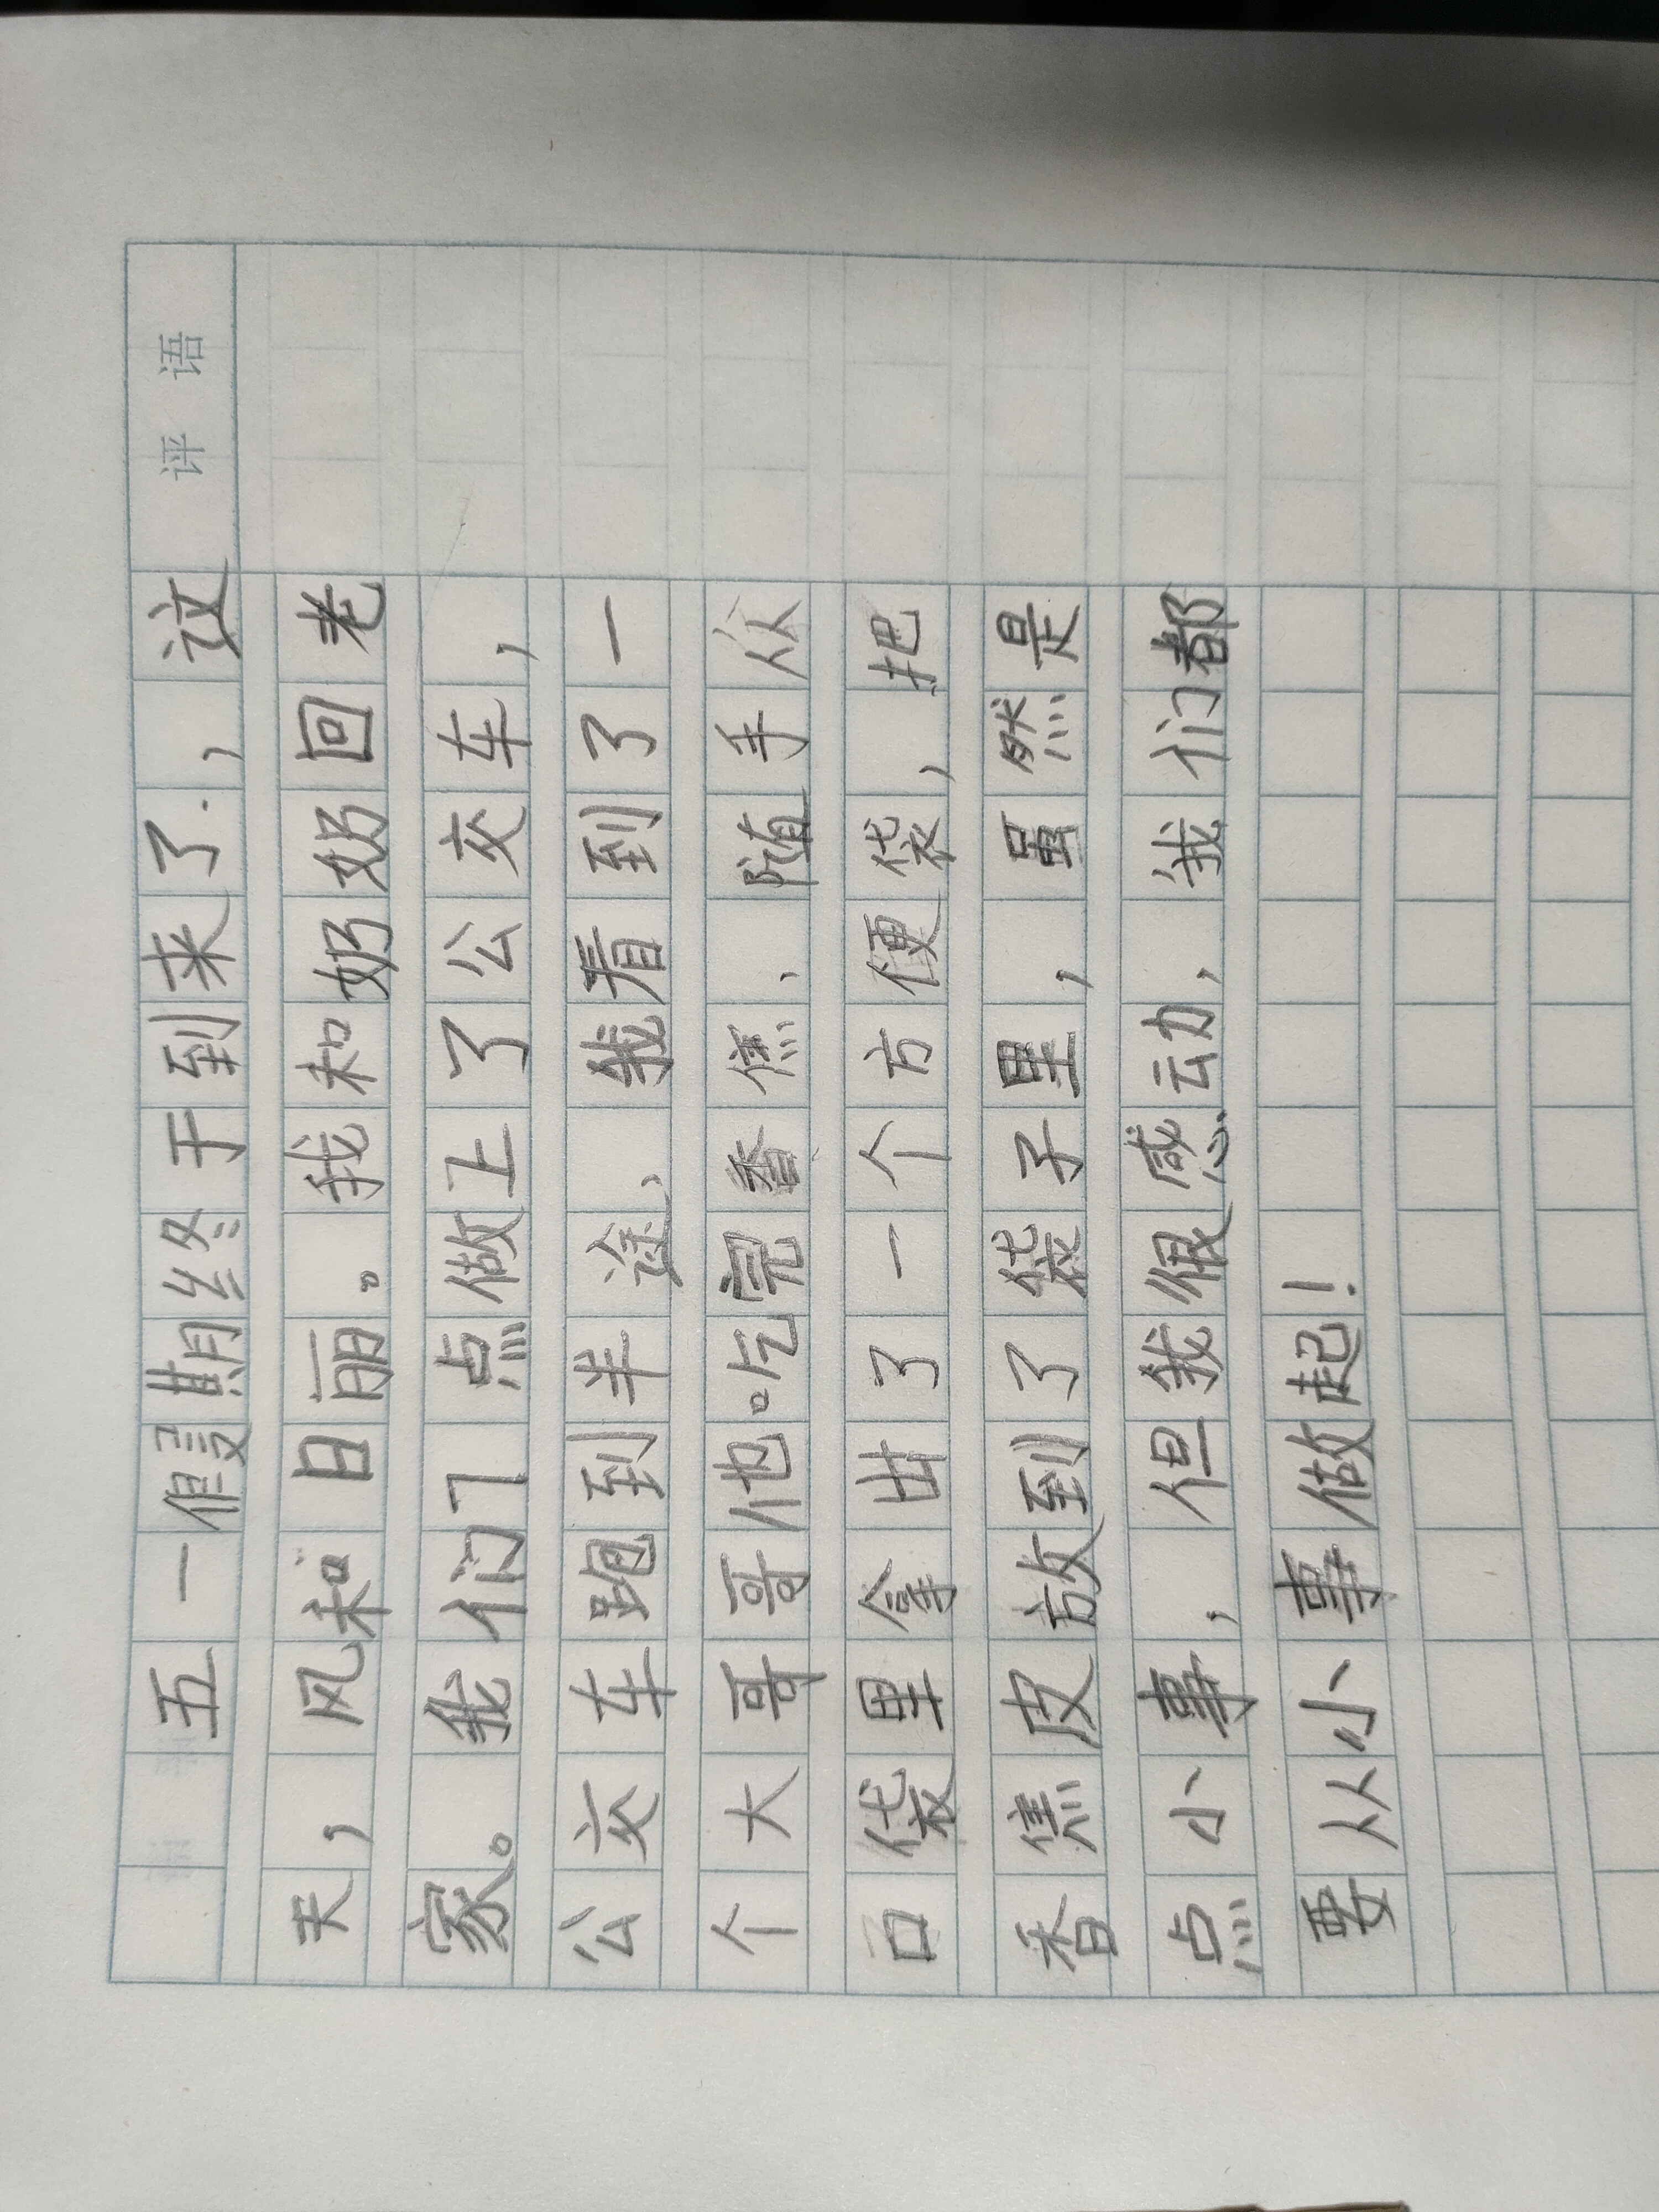 评语
五一假期终于到来了，这
天，风和日丽。我和奶奶回老
家。我们门点做上了公交车，
公交车跑到半途、我看到了一
个大哥哥他吃完香焦、随手从
口袋里拿出了一个方便袋，把
香焦皮放到了袋子里，虽然是
点小事，但我很感动，我们都
要从小事做起！